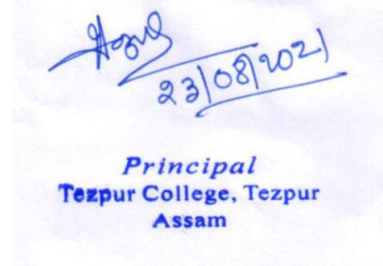 23/08/2021
Principal
Tezpur College, Tezpur
Assam